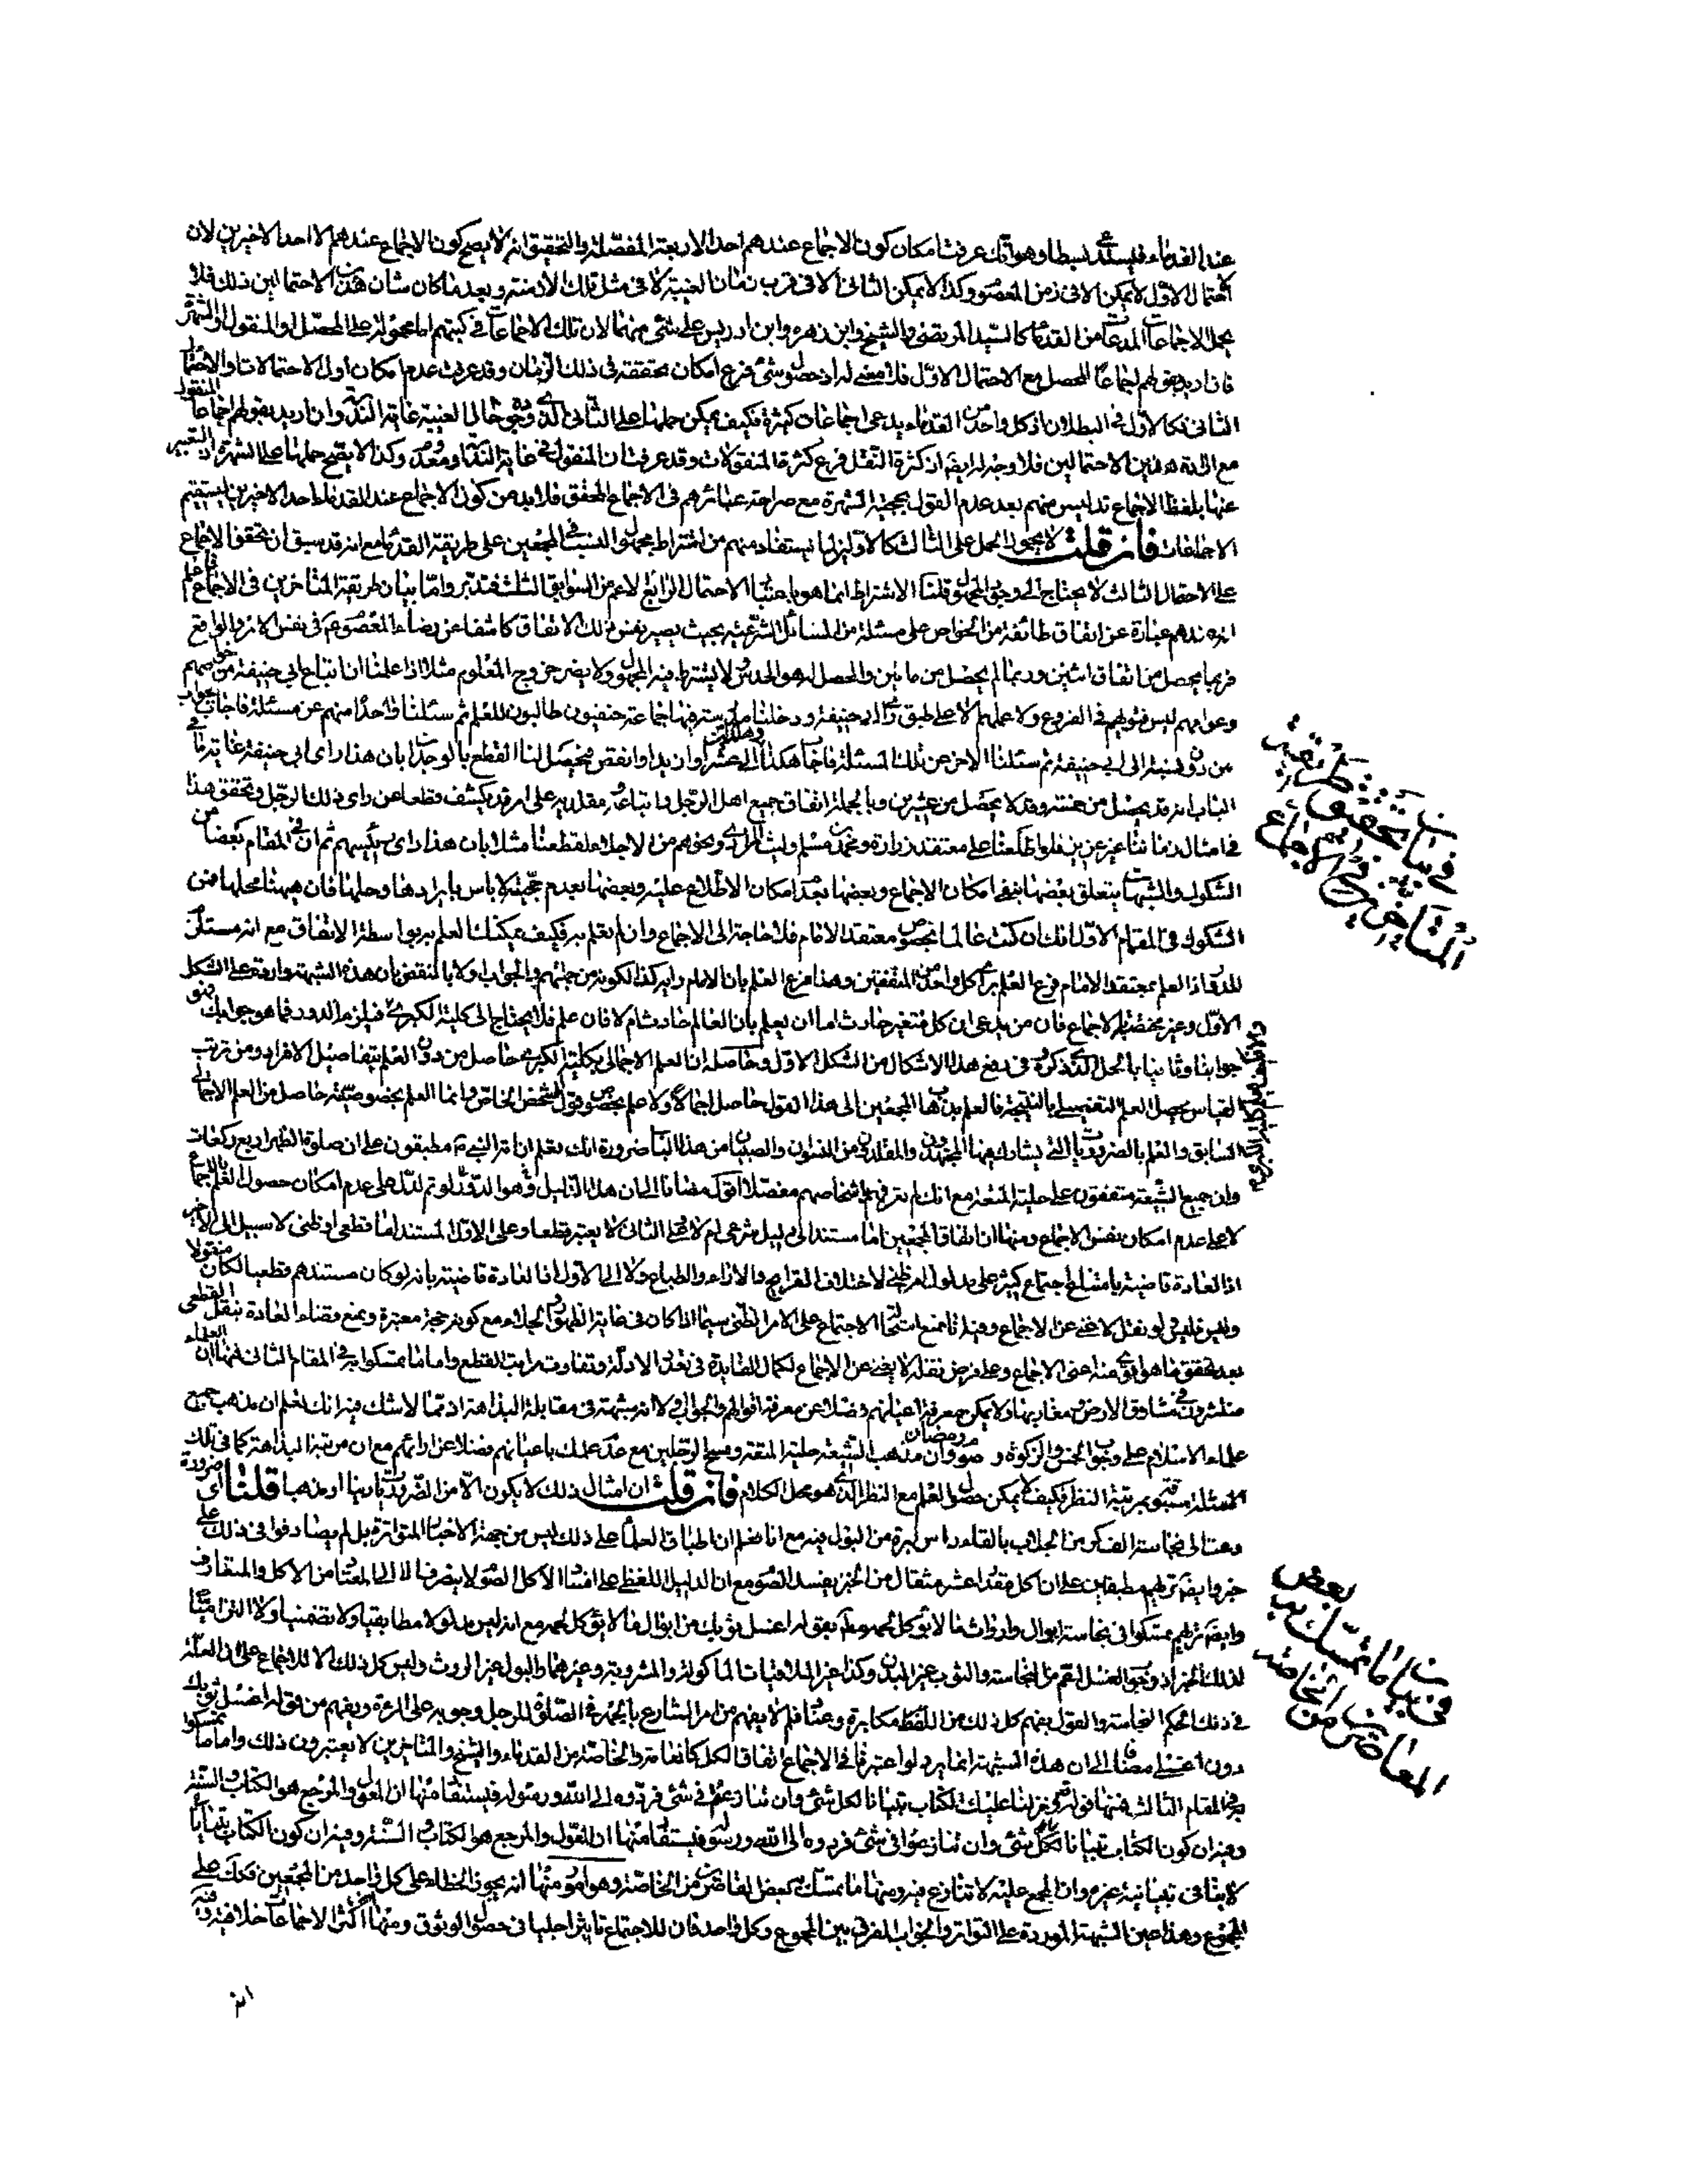 عند القدماء فيستدعى بسطا وهو انك عرفت امكان كون الاجماع عندهم احد الاربعة المفصلة والتحقيق انه لا يصح كون الاجماع عندهم الا احد الاخيرين لان
الاحتمال الاول لا يمكن الا فى زمن المعصوم وكذا لا يمكن الثانى الا فى قرب زمان الغيبة لا فى مثل تلك الازمنة وبعد ما كان شان هذين الاحتمالين ذلك فلا
يحمل الاجماعات المدعات من القدماء كالسيد المرتضى والشيخ وابن زهره وابن ادريس على شئ منهما لان تلك الاجماعات فى كتبهم اما محمولة على المحصل او المنقول او الشهرة
فان اريد بقولهم اجماعا المحصل مع الاحتمال الاول فلا معنى له اذ حصول شئ فرع امكان تحققه فى ذلك الزمان وقد عرفت عدم امكان اول الاحتمالات والاحتمال
الثانى كالاول فى البطلان اذ كل واحد من القدماء يدعى اجماعات كثيرة فكيف يمكن حملها على الثانى الذى وقوعه فى حال الغيبة غاية الندرة وان اريد بقولهم اجماعا المنقول
مع ارادة هذين الاحتمالين فلا وجه له ايضا اذ كثرة النقل فرع كثرة المنقولات وقد عرفت ان المنقول فى غاية الندرة او معدوم وكذا لا يصح حملها على الشهرة اذ التعبير
عنها بلفظ الاجماع تدليس منهم بعد عدم القول بحجية الشهرة مع صراحة عبائرهم فى الاجماع المحقق فلابد من كون الاجماع عند القدماء احد الاخيرين ليستقيم
الاجماعات فان قلت لا يجوز الحمل على الثالث كالاولين لما يستفاد منهم من اشتراط مجهول النسب فى المجمعين على طريقة القدماء مع انه قد سبق ان تحقق الاجماع
على الاحتمال الثالث لا يحتاج الى وجود المجهول قلنا الاشتراط انما هو باعتبار الاحتمال الرابع لاعم من السوابق الثلث فتدبر واما بيان طريقة المتاخرين فى الاجماع فاعلم
انه عندهم عبارة عن اتفاق طائفة من الخواص على مسئلة من المسائل الشرعية بحيث يصير نفس ذلك الاتفاق كاشفا عن رضاء المعصوم ع فى نفس الامر والواقع
فربما يحصل من اتفاق اثنين وربما لم يحصل من مأتين والمحصل له هو الحدس ولا يشترط فيه المجهول ولا يضر خروج المعلوم مثلا اذا علمنا ان اتباع ابى حنيفة خواصهم
وعوامهم ليس فتويهم فى الفروع ولا عملهم الا على طبق راى ابى حنيفة ودخلنا مدرسة فيها جماعة حنفيون طالبون للعلم ثم سئلنا واحدا منهم عن مسئلة فاجاب بجواب
من دون نسبة الى ابى حنيفة ثم سئلنا الاخر عن تلك المسئلة فاجاب هكذا وهكذا الى عشرا وازيد او انقص فيحصل لنا القطع بالوجدان بان هذا راى ابى حنيفة غاية ما فى
الباب انه قد يحصل من خمسة وقد لا يحصل من عشرين وبالجملة اتفاق جميع اهل الرجل واتباعه ومقلديه على امر قد يكشف قطعا عن راى ذلك الرجل وتحقق هذا
فى امثال زماننا غير عزيز فلو اطلعنا على معتقد زرارة ومحمد بن مسلم وليث المرادى ونحوهم من الاجلاء لقطعنا مثلا بان هذا راى رئيسهم ثم ان فى المقام بعضا من
الشكوك والشبهات يتعلق بعضها بنفى امكان الاجماع وبعضها بعدم امكان الاطلاع عليه وبعضها بعدم حجيته لا باس بايرادها وحلها فان ههنا محلها فمن
الشكوك فى المقام الاول انك ان كنت عالما بخصوص معتقد الامام فلا حاجة الى الاجماع وان لم تعلم به فكيف يمكنك العلم به بواسطة الاتفاق مع انه مستلزم
للدور اذ العلم بمعتقد الامام فرع العلم براى كل واحد من المتفقين وهذا فرع العلم بان الامام رايه كذا لكونه من جملتهم والجواب اولا بالنقض بان هذه الشبهة واردة على الشكل
الاول وغير مختصة بالاجماع فان من يدعى ان كل متغير حادث اما ان يعلم بان العالم حادث ام لا فان علم فلا يحتاج الى كلية الكبرى فيلزم الدور فما هو جوابك فهو
جوابنا وثانيا بالحل الذى ذكروه فى دفع هذا الاشكال من الشكل الاول وحاصله ان العلم الاجمالى بكلية الكبرى حاصل من دون العلم بتفاصيل الافراد ومن ترتيب
القياس يحصل العلم التفصيلى بالنتيجة فالعلم بذهاب المجمعين الى هذا القول حاصل اجمالا ولا علم بخصوص قول الشخص الخاص وانما العلم بخصوصيته حاصل من العلم الاجمالى
السابق والعلم بالضروريات التى يشارك فيها المجتهدون والمقلدون من النسوان والصبيان من هذا الباب ضرورة انك تعلم ان امة النبى ص مطبقون على ان صلوة الظهر اربع ركعات
وان جميع الشيعة متفقون على حلية المتعة مع انك لم تر فيهم اشخاصهم مفصلا اقول مضافا الى ان هذا الدليل وهو الدور لو تم لدل على عدم امكان حصول العلم بالاجماع
لا على عدم امكان نفس الاجماع ومنها ان اتفاق المجمعين اما مستند الى دليل شرعى ام لا فعلى الثانى لا يعتبر قطعا وعلى الاول المستند اما قطعى او ظنى لا سبيل الى الاخير
اذ العادة قاضية بامتناع اجتماع كثير على مدلول امر ظنى لاختلاف القرايح والاراء والطباع ولا الى الاول اذ العادة قاضية بانه لو كان مستندهم قطعيا لكان منقولا
وليس فليس ولو نقل لاغنى عن الاجماع وفيه انا نمنع استحالة الاجتماع على الامر الظنى سيما اذا كان فى غاية الظهور والجلاء مع كونه حجة معتبرة ونمنع قضاء العادة بنقل القطعى
بعد تحقق ما هو اقوى منه اعنى الاجماع وعلى فرض نقله لا يغنى عن الاجماع لكمال الفايدة فى تعدد الادلة وتفاوت مراتب القطع واما ما تمسكوا به فى المقام الثانى فمنها ان العلماء
منتشرون فى مشارق الارض ومغاربها ولا يمكن معرفة اعيانهم فضلا عن معرفة اقوالهم والجواب اولا انه شبهة فى مقابلة البداهة اذ مما لا شك فيه انك تعلم ان مذهب جميع
علماء الاسلام على وجوب الخمس والزكوة وصوم رمضان وان مذهب الشيعة حلية المتعة ومسح الرجلين مع عدم علمك باعيانهم فضلا عن ارائهم مع ان مرتبة البداهة كما فى تلك
المسئلة مسبوقة بمرتبة النظر فكيف لا يمكن حصول العلم مع النظر الذى هو محل الكلام فان قلت ان امثال ذلك لا يكون الا من الضروريات دينا او مذهبا قلنا اى ضرورة
دعت الى نجاسة الف كر من الجلاب بالقاء راس ابرة من البول فيه مع انا نعلم ان اطباق العلماء على ذلك ليس من جهة الاخبار المتواترة بل لم يصادفوا فى ذلك على
خبر وايضا تريهم مطبقين على ان اكل مقدار عشر مثقال من الخبز يفسد الصوم مع ان الدليل اللفظى على افساد الاكل الصوم لا ينصرف الا الى المعتاد من الاكل والمتعارف
وايضا تريهم تمسكوا فى نجاسة ابوال وارواث ما لا يؤكل لحمه بقوله اغسل ثوبك من ابوال ما لا يؤكل لحمه مع انه ليس مدلولا مطابقيا ولا تضمنيا ولا التزاميا
لذلك الخبر اذ وجوب الغسل اعم من النجاسة والثوب غير البدن وكذا غير الملاقيات الماكولة والمشروبة وغيرهما والبول غير الروث وليس كل ذلك الا للاجماع على ان العلة
فى ذلك الحكم النجاسة والقول بفهم كل ذلك من اللفظ مكابرة وعناد فلم لا يفهم من امر الشارع بالجهر فى الصلوة للرجل وجوبه على المرءة ويفهم من قوله اغسل ثوبك
دون اغسلى مضافا الى ان هذه الشبهة انما يرد لو اعتبرنا فى الاجماع اتفاق الكل كالعامة والخاصة من القدماء والشيخ والمتاخرين لا يعتبرون ذلك واما ما تمسكوا
به فى المقام الثالث فمنها قوله تعالى نزلنا عليك الكتاب تبيانا لكل شئ وان تنازعتم فى شئ فردوه الى الله ورسوله فيستفاد منها ان المعول والمرجع هو الكتاب والسنة
وفيه ان كون الكتاب تبيانا لكل شئ وان تنازعوا فى شئ فردوه الى الله ورسوله فيستفاد منها ان المعول والمرجع هو الكتاب والسنة وفيه ان كون الكتاب تبيانا
لا ينافى تبيانية غيره وان المجمع عليه لا تنازع فيه ومنها ما تمسك به بعض المعاصرين من الخاصة وهو امور منها انه يجوز الخطاء على كل واحد من المجمعين فكذا على
المجموع وهذا عين الشبهة الموردة على التواتر والجواب الفرق بين المجموع وكل واحد فان للاجتماع تاثيرا جليا فى حصول الوثوق ومنها ان اكثر الاجماعات خلافية
فى بيان تحقيق طريقة
المتاخرين فى الاجماع
فى بيان ما تمسك به بعض
المعاصرين من الخاصة